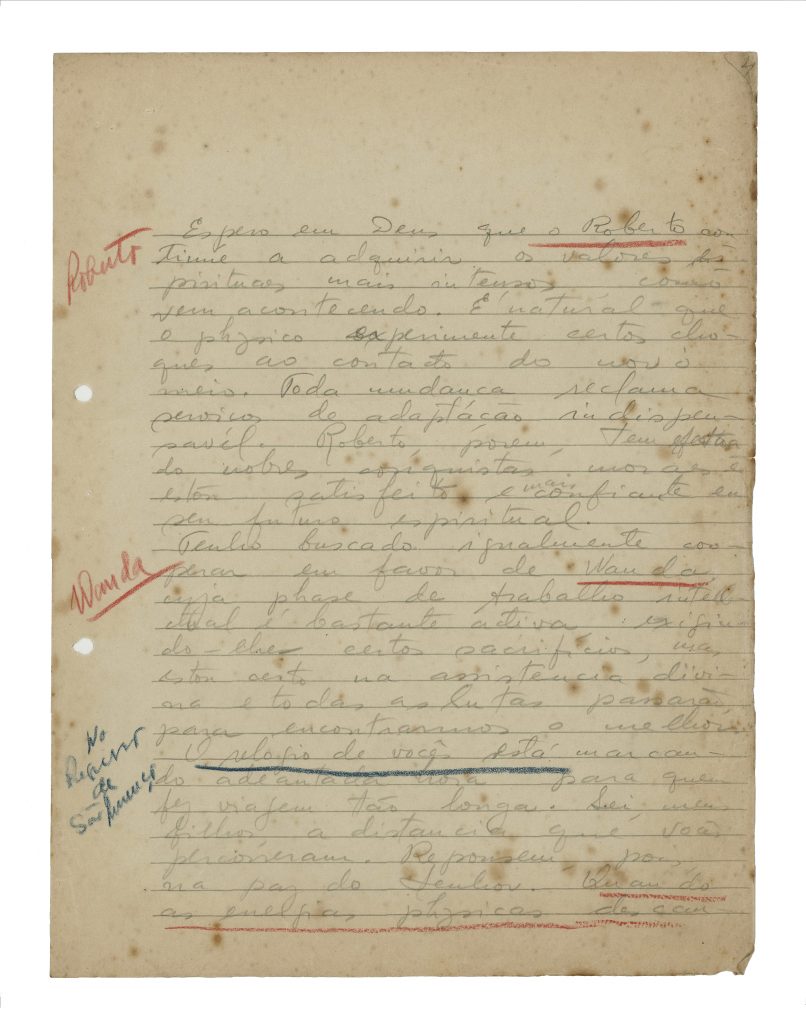 4
Espero em Deus que o Roberto con
Roberto
tinúe a adquirir os valores es
pirituaes mais intensos, como
vem acontecendo. É natural que
o physico experimente certos cho-
ques ao contacto do novo
meio. Toda mudança reclama
serviços de adaptação indispen-
savél. Roberto, porém, tem
do nobres conquistas moraes e
estou satisfeito e mais confiante em
seu futuro espiritual.
Tenho buscado igualmente coo-
Wanda
perar em favor de Wanda,
cuja phase de trabalho intell-
ctual é bastante activa exigin-
do-lhe certos sacrifícios, mas
estou certo na assistencia divi-
na e todas as lutas passarão
para encontrarmos o melhor.
No
Regresso
de
São Lourenço
O relogio de vocês está marcan-
do adeantada hora para quem
fez viagem tão longa. Sei, meus
filhos a distancia que vocês
percorreram. Reponsem, pois,
na paz do Senhor. Quando
as energias physicas descan-